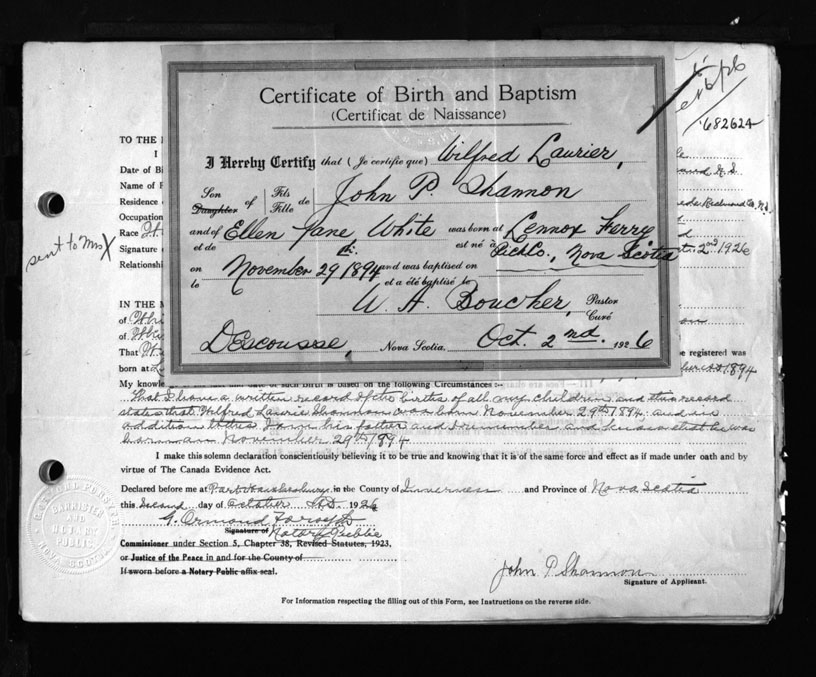 682624
Certificate of Birth and Baptism
(Certificat de Naissance)
I Hereby Certify that (Je certifie que) Wilfred Laurier,
Son Daughter of Fils Fille de John P. Shannon
and of et de Ellen Jane White was born at est né à Lennox Ferry
Rich Co., Nova Scotia
on le November 29 1894 and was baptised on et a été baptisé le
W. A. Boucher, Pastor Curé
Descousse, Nova Scotia. Oct. 2nd. 1926
TO THE
I
Date of Bi
Name of F
Residence
Occupation
Race
Signature
Relationshi
2nd 1926
sent to Mrs X
IN THE M
of
of
That
be registered was
born at
1894
My knowle
such birth is based on the following Circumstances :-
That I have a written record of the births of all my children and this record
states that Wilfred Laurie Shannon was born November 29th 1894 and in
addition to this I am his father and I remember and know that he was
born on November 29th 1894
I make this solemn declaration conscientiously believing it to be true and knowing that it is of the same force and effect as if made under oath and by
virtue of The Canada Evidence Act.
Declared before me at Port Hawkesbury in the County of Inverness and Province of Nova Scotia
this Second day of October A.D. 1926
G. Ormond Forsyth
Signature of Notary Public
Commissioner under Section 5, Chapter 38, Revised Statutes, 1923,
or Justice of the Peace in and for the County of
If sworn before a Notary Public affix seal.
John P Shannon
Signature of Applicant.
For Information respecting the filling out of this Form, see Instructions on the reverse side.